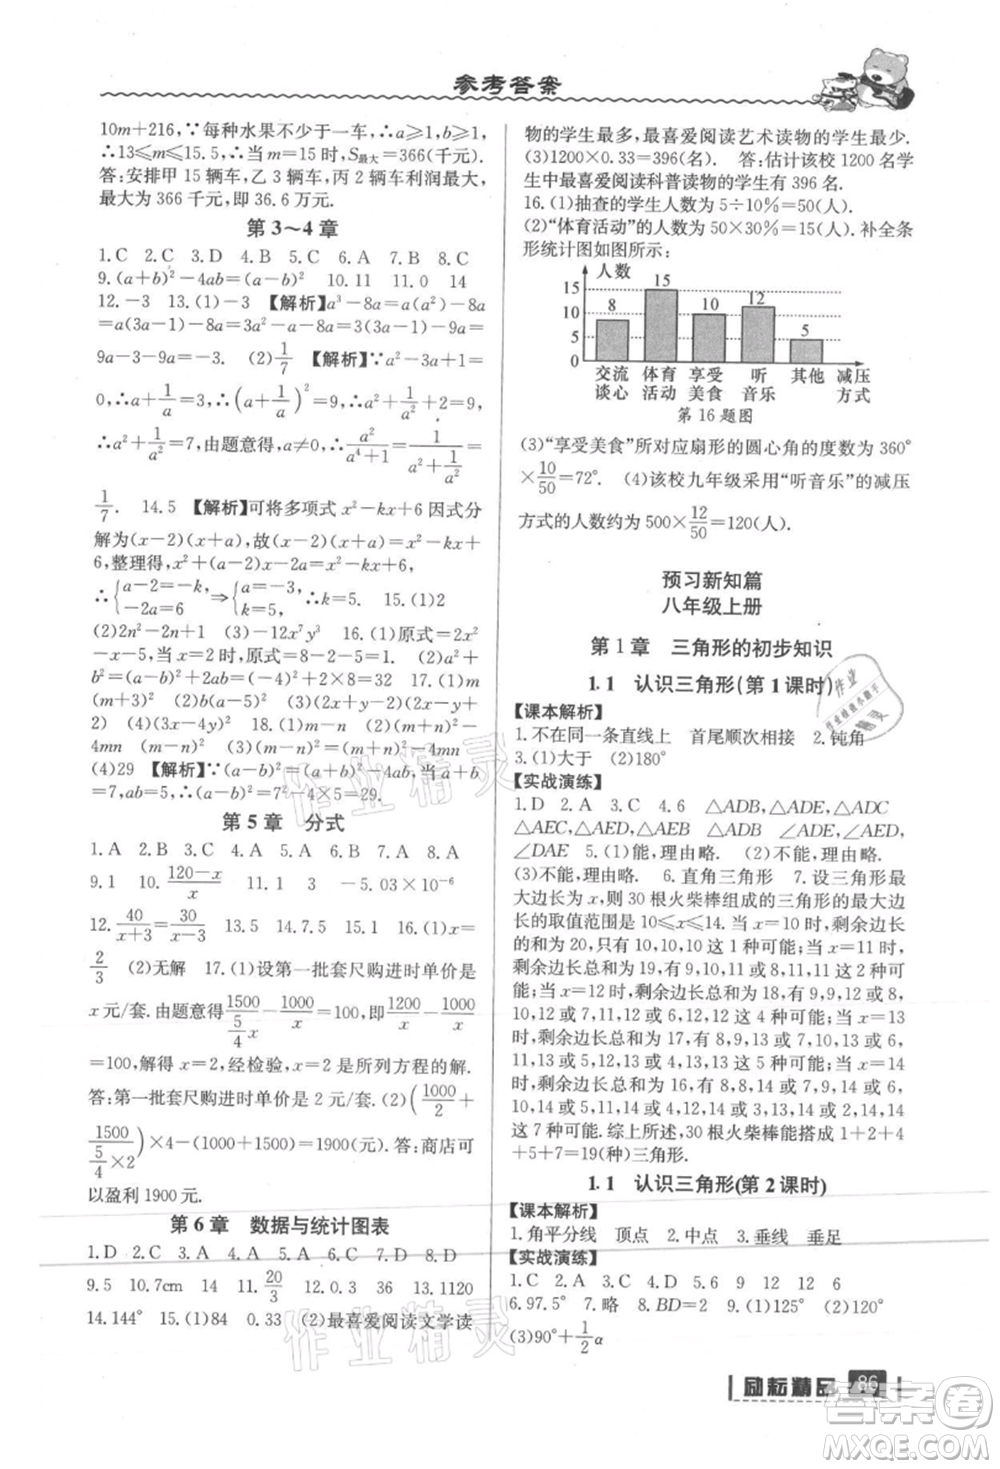 参考答案
10m+216,∵每种水果不少于一车,∴a≥1,b≥1,
∴13≤m≤15.5,∴当 m=15 时,S最大=366(千元).
答:安排甲 15 辆车,乙 3 辆车,丙 2 车利润最大,
最大为 366 千元,即 36.6 万元.
第 3～4 章
1.C 2.C 3.D 4.B 5.C 6.A 7.B 8.C
9.(a+b)²-4ab=(a-b)² 10.11 11.0 14
12.-3 13.(1)-3 【解析】a³-8a=a(3a-1)-8a
=a(3a-1)-8a=3a²-a-8a=3(3a-1)-9a=
9a-3-9a=-3. (2)1/7 【解析】∵a²-3a+1=
0,∴a+1/a=3,∴(a+1/a)²=a²+2+1/a²=9,
∴a²+1/a²=7,由题意得,a≠0,∴a²/(a⁴+1)=1/(a²+1/a²)=
1/7. 14.5 【解析】可将多项式 x²-kx+6 因式分
解为(x-2)(x+a),故(x-2)(x+a)=x²-kx+
6,整理得,x²+(a-2)x-2a=x²-kx+6,
∴{a-2=-k, -2a=6 ⇒{a=-3, k=5, ∴k=5. 15.(1)2
(2)2n²-2n+1 (3)-30x⁷y³ 16.(1)原式=
4x+8,当 x=-2 时,原式=-8+8=0. (2)2a+
b²=b(2a+b²),b(2a-5b) 17.(1)-
(m+3)² (2)3(2x+y)(2x-y) (3)(a-b)
(4-x)(3x-4) 18.(1)m-n (2)(m+n)²-
4mn (m-n)² (3)(m+n)²=(m-n)²+4mn
(4)29 【解析】∵(a-b)²=(a+b)²-4ab,当 a+
b=7,ab=5 时,(a-b)²=7²-4×5=29.
第 5 章 分式
1.A 2.B 3.C 4.A 5.A 6.B 7.A 8.A
9.1 10.(120-x)/x 11.1 3 -5.03×10⁻⁶
12.40/(x+3)=30/x 13.5 14.7.5 15.1 16.(1)x=
2/3 (2)无解 17.(1)设第一批套尺购进时单价是
x 元/套.由题意得 1500/(5/4 x)-1000/x=100,即 1200/x-1000/x
=100,解得 x=2,经检验,x=2 是所列方程的解.
答:第一批套尺购进时单价是 2 元/套.(2)(1000/2+
1500/(5/4×2))×4-(1000+1500)=1900(元).答:商店可
以盈利 1900 元.
第 6 章 数据与统计图表
1.D 2.A 3.A 4.C 5.A 6.C 7.B 8.D
9.5 10.7cm 14 11.20/3 12.0.3 36 13.1120
14.144° 15.(1)84 0.33 (2)最喜爱阅读文学读
物的学生最多,最喜爱阅读艺术读物的学生最少.
(3)1200×0.33=396(名). 答:估计该校 1200 名学
生中最喜爱阅读科普读物的学生有 396 名.
16.(1)抽查的学生人数为 5÷10%=50(人).
(2)“体育活动”的人数为 50×30%=15(人).补全条
形统计图如图所示:
人数
15 10 5 0
8 15 10 12 5
交流 体育 享受 听 其他 减压
谈心 活动 美食 音乐 方式
第 16 题图
(3)“享受美食”所对应扇形的圆心角的度数为 360°
×10/50=72°. (4)该校九年级采用“听音乐”的减压
方式的人数约为 500×12/50=120(人).
预习新知篇
八年级上册
第 1 章 三角形的初步知识
1.1 认识三角形(第 1 课时)
【课本解析】
1.不在同一条直线上 首尾顺次相接 2.钝角
3.(1)大于 (2)180°
【实战演练】
1.D 2.A 3.C 4.6 △ADB,△ADE,△ADC
△AEC,△AED,△AEB △ADB ∠ADE,∠AED,
∠DAE 5.(1)能,理由略. (2)不能,理由略.
(3)不能,理由略. 6.直角三角形 7.设三角形最
大边长为 x,则 30 根火柴棒组成的三角形的最大边长
的取值范围是 10≤x≤14,当 x=10 时,剩余边长总
的和为 20,有:10,10,10 这 1 种可能;当 x=11 时,
剩余边长总和为 19,有:8,11,11 9,10,11 这 2 种可
能;剩余边长总和为 18,有:9,9,12 8,10,12 7,11,
12 6,12,12 这 4 种可能;当 x=13
时,剩余边长总和为 17,有:8,9,13 7,10,13 6,
11,13 5,12,13 4,13,13 这 5 种可能;当 x=14
时,剩余边长总和为 16,有:8,8,14 7,9,14 6,10,
14 5,11,14 4,12,14 3,13,14 2,14,14 这 7 种
可能.综上所述,30 根火柴棒能搭成 1+2+4+5+
7=19(种)三角形.
1.1 认识三角形(第 2 课时)
【课本解析】
1.角平分线 顶点 2.中点 3.垂线 垂足
【实战演练】
1.C 2.A 3.C 4.30 9 5.6 12 12 6
6.97.5° 7.略 8.BD=2 9.(1)125° (2)130°
(3)90°+1/2α
励耘精品 86
答案圈
MXQE.COM
作业精灵
作业精灵